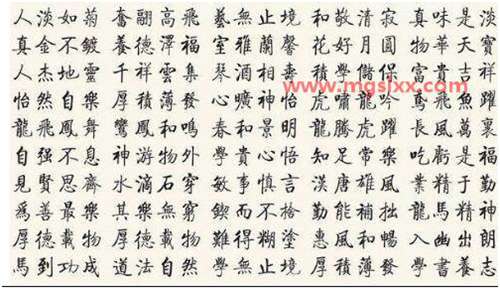 人淡如菊 奮翮高飛 藝無止境 和敬清寂 真味是淡
真金不鍍 養德澤福 室雅蘭馨 花好月圓 物華天寶
人杰地靈 千祥雲集 琴 積學儲寶 富貴吉祥
www.mgslxx.com
怡然自樂 厚積薄發 心曠神怡 虎嘯龍吟 鳶飛魚躍
龍飛鳳舞 鸞鳳和鳴 春和景明 龍騰虎躍 長風萬里
自強不息 神游物外 學貴心悟 知足常樂 吃虧是福
見賢思齊 水滴石穿 敏事慎言 漢唐雄風 業精于勤
爲善最樂 其樂無窮 鍥而不捨 勤能補拙 龍馬精神
厚德載物 厚德載物 難得糊塗 惠風和暢 入幽出朗
馬到功成 道法自然 學無止境 厚積薄發 學書養志